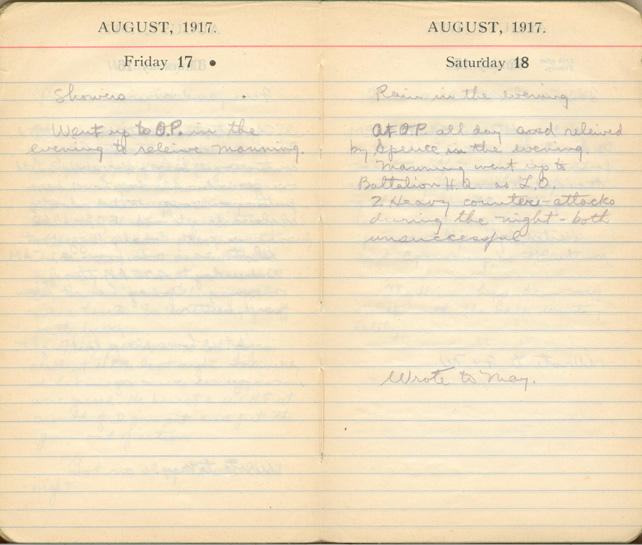 AUGUST, 1917.
Friday 17
Showers
Went up to O.P. in the
evening to releive Manning.
AUGUST, 1917.
Saturday 18
Rain in the evening
At O.P. all day and releived
by Spence in the evening.
Manning went up to
Battalion H.Q. as L.O.
2 Heavy counter-attacks
during the night - both
unsuccessful
Wrote to May.